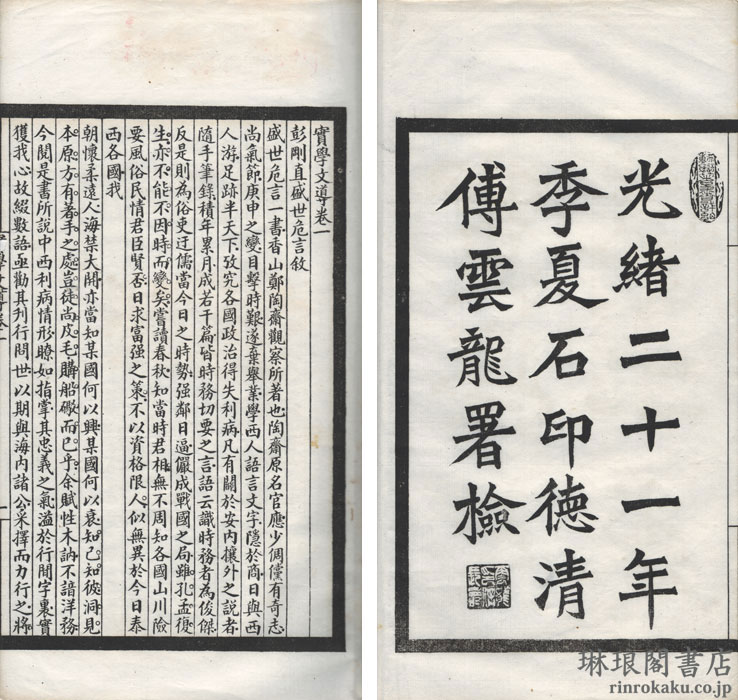 光緒二十一年
季夏石印德清
傅雲龍署檢
實學文導卷一
彭剛直盛世危言敘
盛世危言一書香山鄭陶齋觀察所著也陶齋原名官應少倜儻有奇志
尚氣節庚申之變目擊時艱遂棄舉業學西人語言文字隱於商日與西
人游足跡半天下攷究各國政治得失利病凡有關於安內攘外之說者
隨手筆錄積年累月成若干篇皆時務切要之言語云識時務者為俊傑
反是則為俗吏迂儒當今日之時勢强鄰日逼儼成戰國之局雖孔孟復
生亦不能不因時而變矣嘗讀春秋知當時君相無不周知各國山川險
要風俗民情君臣賢否日求富强之策不以資格限人似無異於今日泰
西各國我
朝懷柔遠人海禁大開亦當知某國何以興某國何以衰知己知彼洞見
本原方有著手之處豈徒尚皮毛購船礮而已乎余賦性木訥不諳洋務
今閱是書所說中西利病情形瞭如指掌其忠義之氣溢於行間字裏實
獲我心故綴數語亟勸其刊行問世以期與海內諸公采擇而力行之將
琳琅閣書店
rinrokaku.co.jp